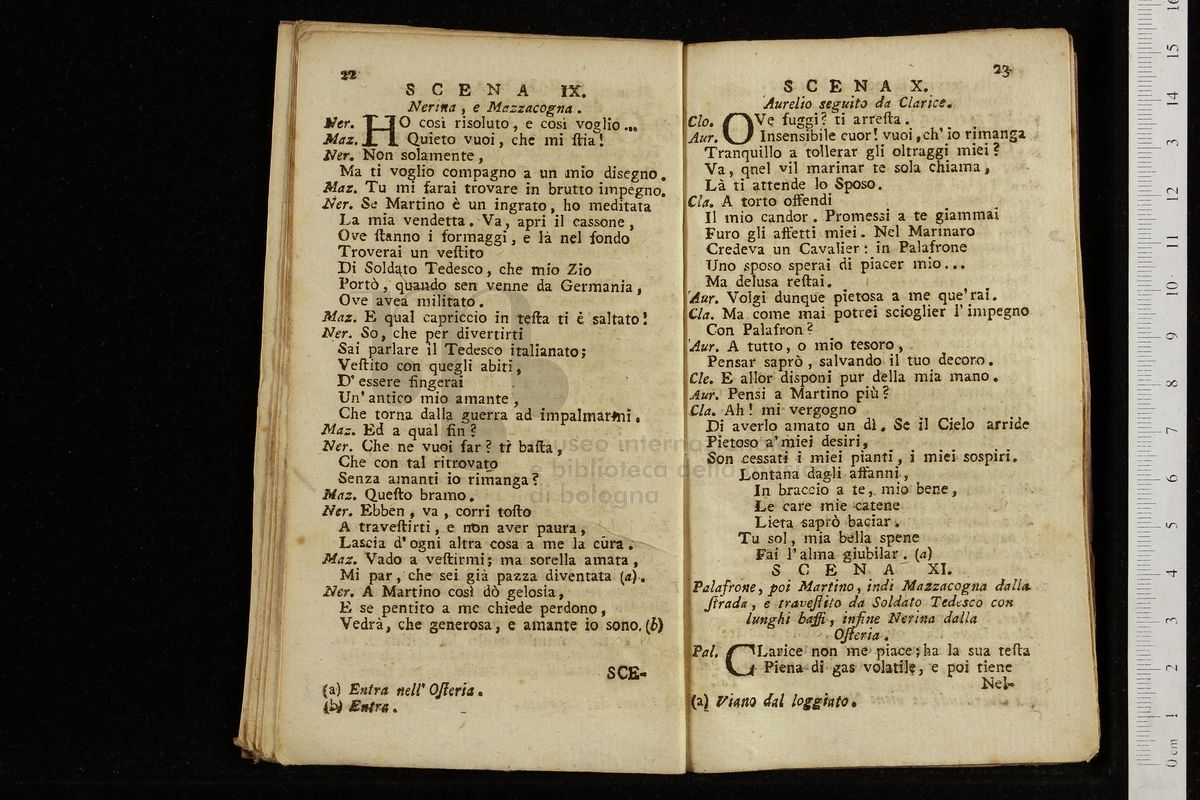 22
SCENA IX.
Nerina, e Mazzacogna.
Ner. HO così risoluto, e così voglio...
Maz. Quieto vuoi, che mi ſtia!
Ner. Non solamente,
Ma ti voglio compagno a un mio disegno.
Maz. Tu mi farai trovare in brutto impegno.
Ner. Se Martino è un ingrato, ho meditata
La mia vendetta. Va, apri il cassone,
Ove ſtanno i formaggi, e là nel fondo
Troverai un veſtito
Di Soldato Tedesco, che mio Zio
Portò, quando sen venne da Germania,
Ove avea militato.
Maz. E qual capriccio in teſta ti è saltato!
Ner. So, che per divertirti
Sai parlare il Tedesco italianato;
Veſtito con quegli abiti,
D' essere fingerai
Un' antico mio amante,
Che torna dalla guerra ad impalmarmi.
Maz. Ed a qual fin?
Ner. Che ne vuoi far? ti baſta,
Che con tal ritrovato
Senza amanti io rimanga?
Maz. Queſto bramo.
Ner. Ebben, va, corri toſto
A traveſtirti, e non aver paura,
Lascia d' ogni altra cosa a me la cura.
Maz. Vado a veſtirmi; ma sorella amata,
Mi par, che sei già pazza diventata (a).
Ner. A Martino così dò gelosia,
E se pentito a me chiede perdono,
Vedrà, che generosa, e amante io sono. (b)
SCE-
(a) Entra nell' Oſteria.
(b) Entra.
23
SCENA X.
Aurelio seguito da Clarice.
Clo. OVe fuggi? ti arreſta.
Aur. Insensibile cuor! vuoi, ch' io rimanga
Tranquillo a tollerar gli oltraggi miei?
Va, qnel vil marinar te sola chiama,
Là ti attende lo Sposo.
Cla. A torto offendi
Il mio candor. Promessi a te giammai
Furo gli affetti miei. Nel Marinaro
Credeva un Cavalier: in Palafrone
Uno sposo sperai di piacer mio...
Ma delusa reſtai.
Aur. Volgi dunque pietosa a me que' rai.
Cla. Ma come mai potrei scioglier l' impegno
Con Palafron?
Aur. A tutto, o mio tesoro,
Pensar saprò, salvando il tuo decoro.
Cle. E allor disponi pur della mia mano.
Aur. Pensi a Martino più?
Cla. Ah! mi vergogno
Di averlo amato un dì. Se il Cielo arride
Pietoso a' miei desiri,
Son cessati i miei pianti, i miei sospiri.
Lontana dagli affanni,
In braccio a te, mio bene,
Le care mie catene
Lieta saprò baciar.
Tu sol, mia bella spene
Fai l' alma giubilar. (a)
SCENA XI.
Palafrone, poi Martino, indi Mazzacogna dalla
ſtrada, e traveſtito da Soldato Tedesco con
lunghi baffi, infine Nerina dalla
Oſteria.
Pal. CLarice non me piace; ha la sua teſta
Piena di gas volatile, e poi tiene
Nel-
(a) Viano dal loggiato.
museo internaz
e biblioteca della musica
di bologna
0 cm 1 2 3 4 5 6 7 8 9 10 11 12 13 14 15 16